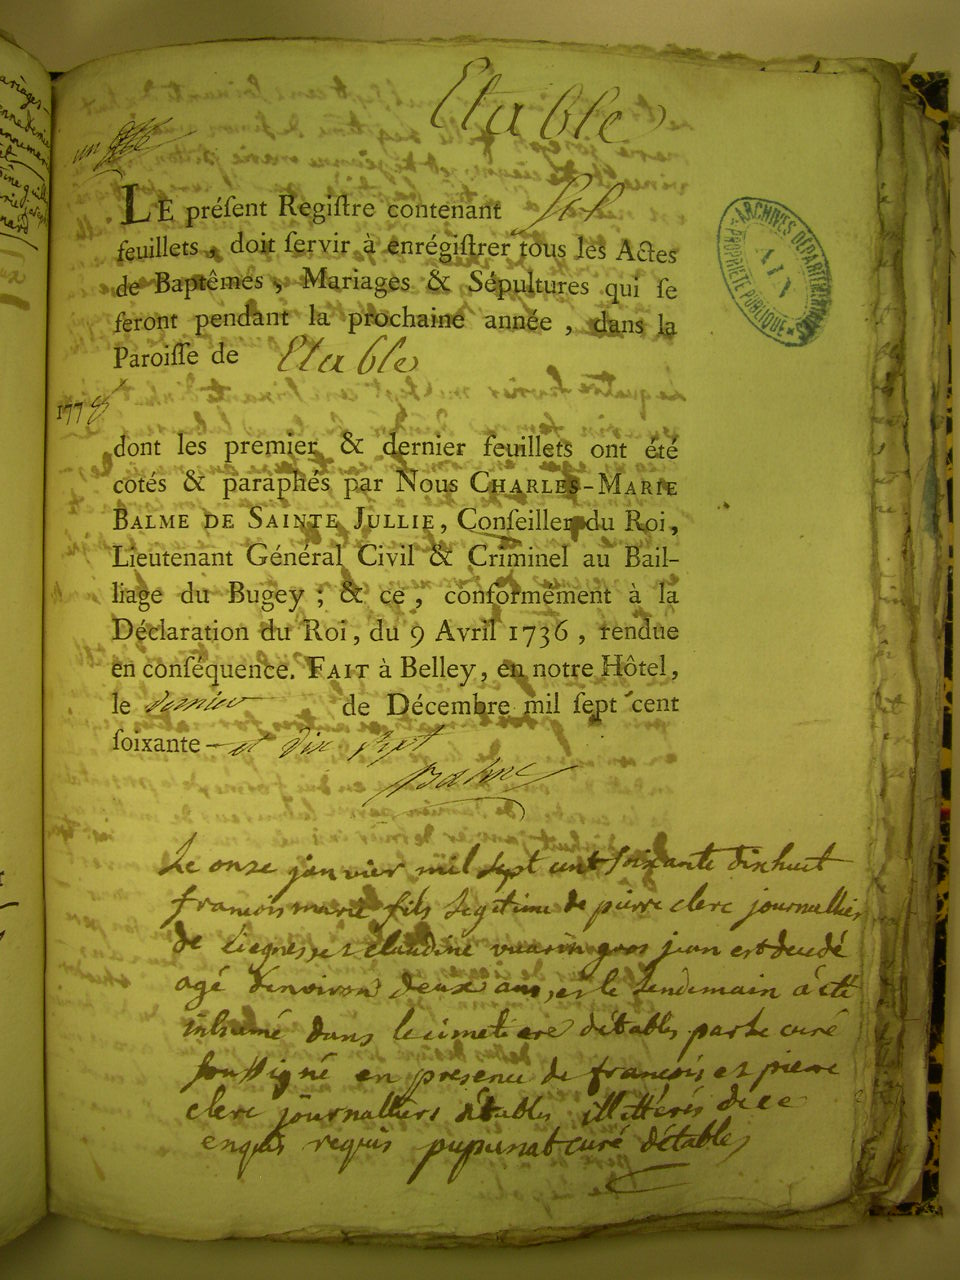 Etable
un
LE préſent Regiſtre contenant
feuillets, doit ſervir à enrégiſtrer tous les Actes
de Baptêmes, Mariages & Sépultures qui ſe
feront pendant la prochaine année, dans la
Paroiſſe de Etable
1778
dont les premier & dernier feuillets ont été
cotés & paraphés par Nous CHARLES-MARIE
BALME DE SAINTE JULLIE, Conſeiller du Roi,
Lieutenant Général Civil & Criminel au Bail-
liage du Bugey; & ce, conformément à la
Déclaration du Roi, du 9 Avril 1736, rendue
en conſéquence. FAIT à Belley, en notre Hôtel,
le dernier de Décembre mil ſept cent
ſoixante et dix sept
Balme
ARCHIVES DÉPARTEMENTALES
AIN
PROPRIÉTÉ PUBLIQUE
Le onze janvier mil sept cent soixante dixhuit
francois marie fils legitime de pierre clerc journallier
de et claudine vuarin gros jean est decedé
agé d'environ deux ans, et le lendemain a été
inhumé dans le cimetiere d'étables par le curé
soussigné en presence de francois et pierre
clerc journalliers d'étables illitterés de ce
enquis requis curé d'étables